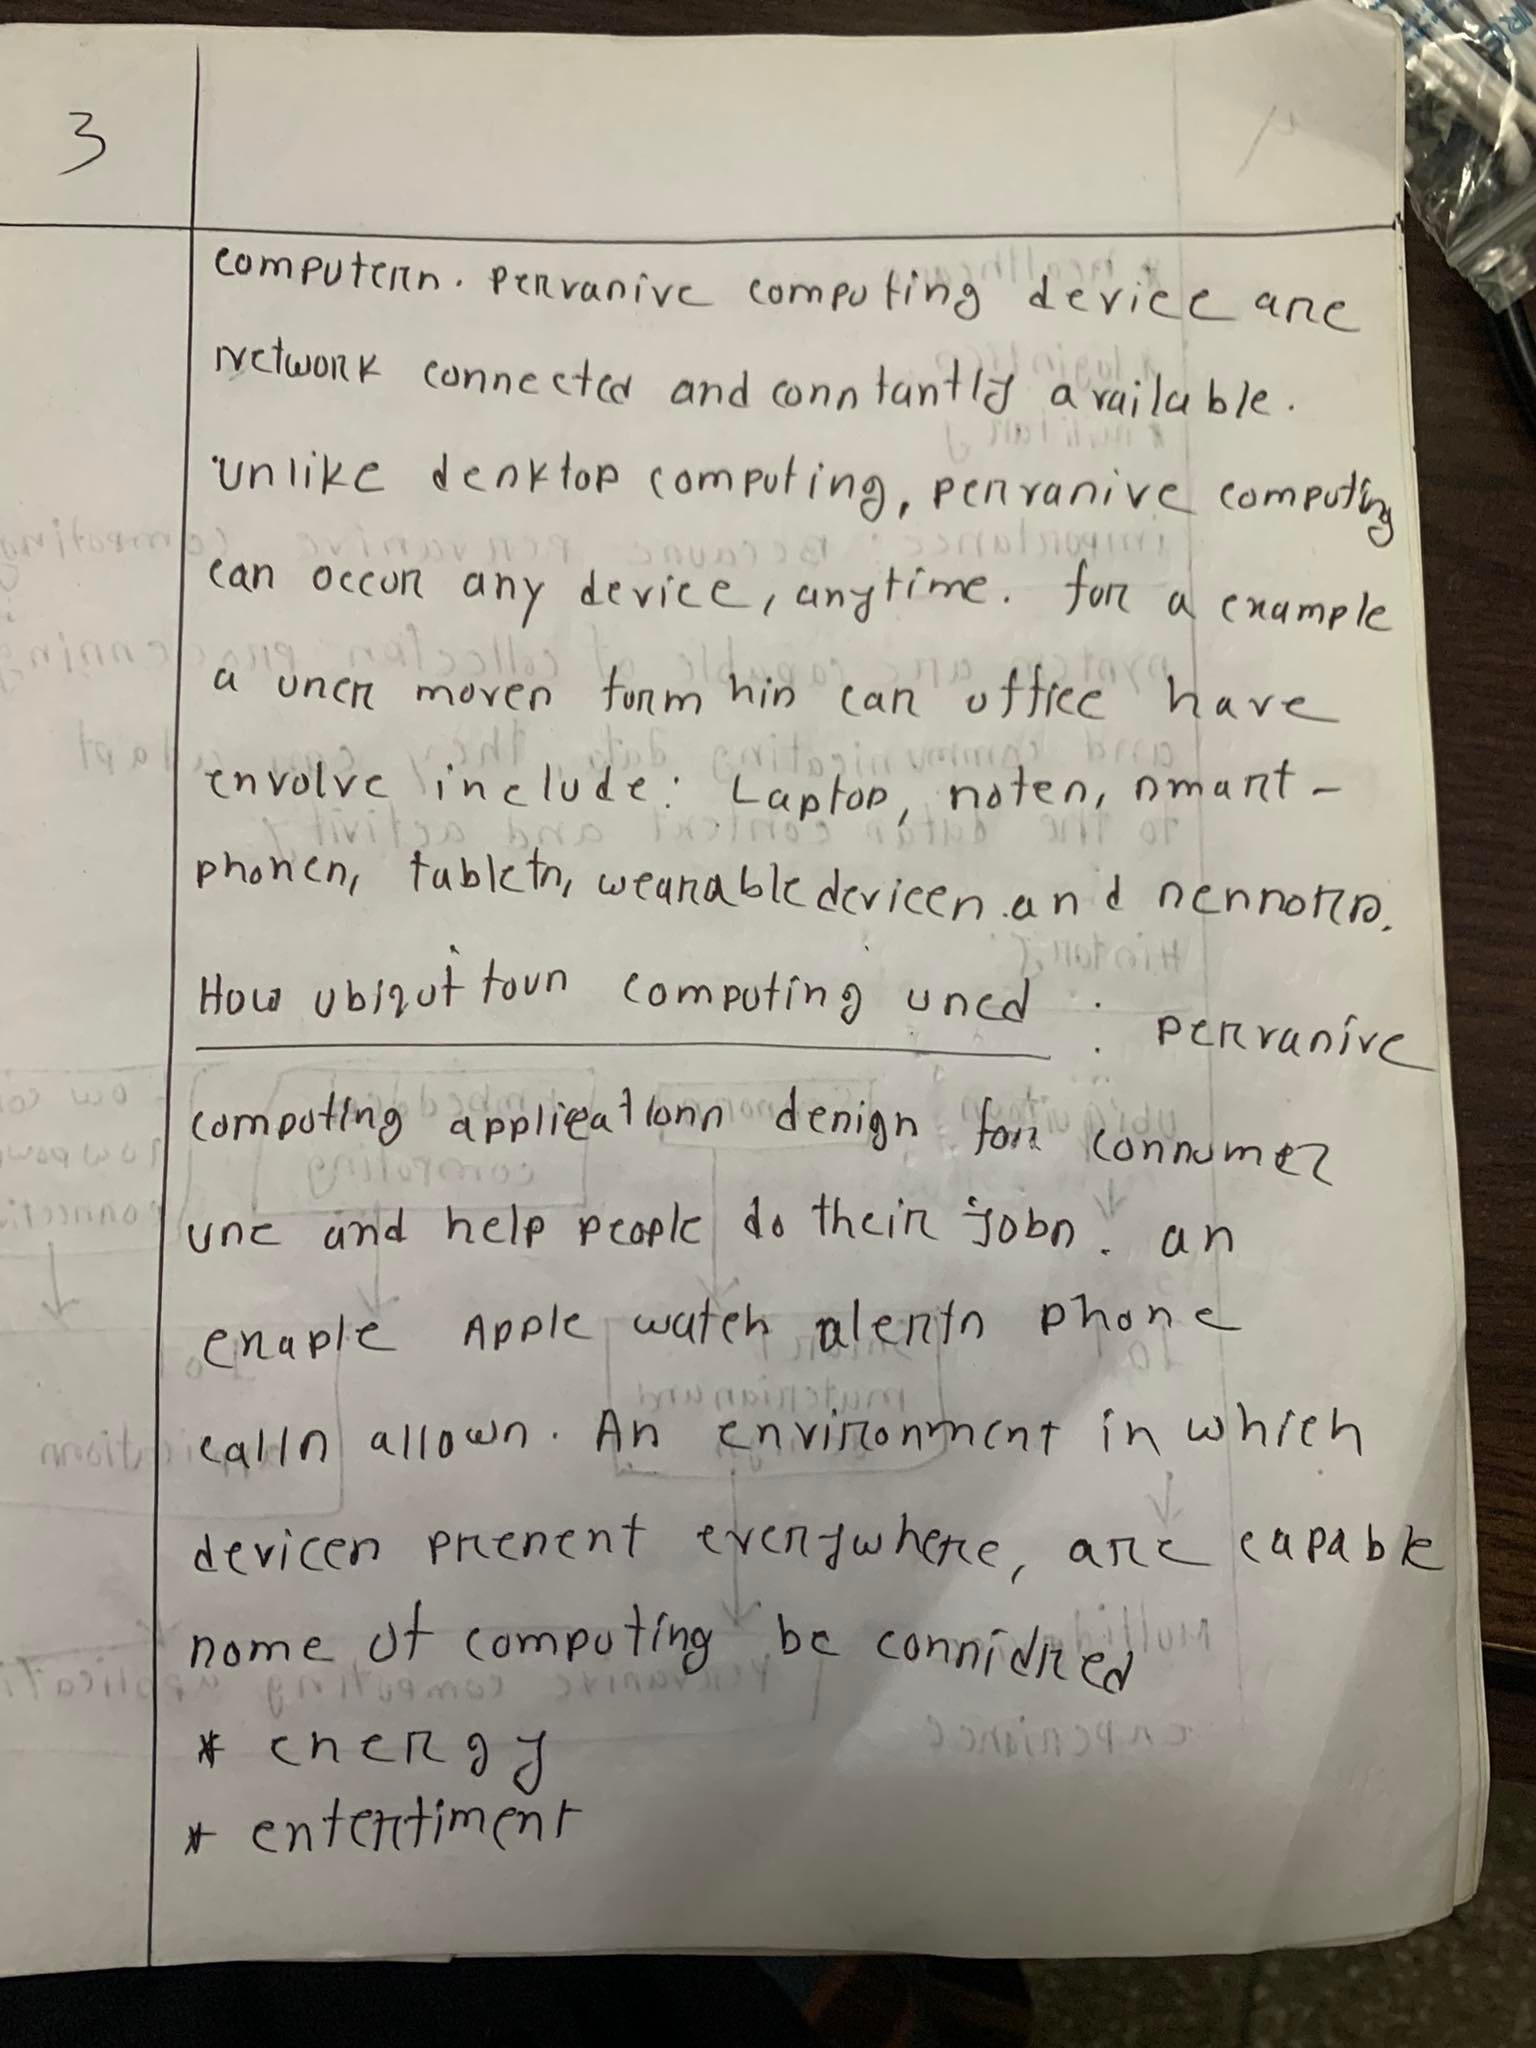 3
computers. pervasive computing device are
Network connected and constantly available.
unlike desktop computing, pervasive computing
can occur any device, anytime. for a example
a user moves form his car office have
envolve include: Laptop, notes, smart-
phones, tablets, wearable devices and sensors.
How ubiqutious computing used : pervasive
computing applications design for consumer
use and help people do their jobs. an
exaple Apple watch alerts phone
calls allows. An environment in which
devices present everywhere, are capable
some of computing be considred
* energy
* entertiment